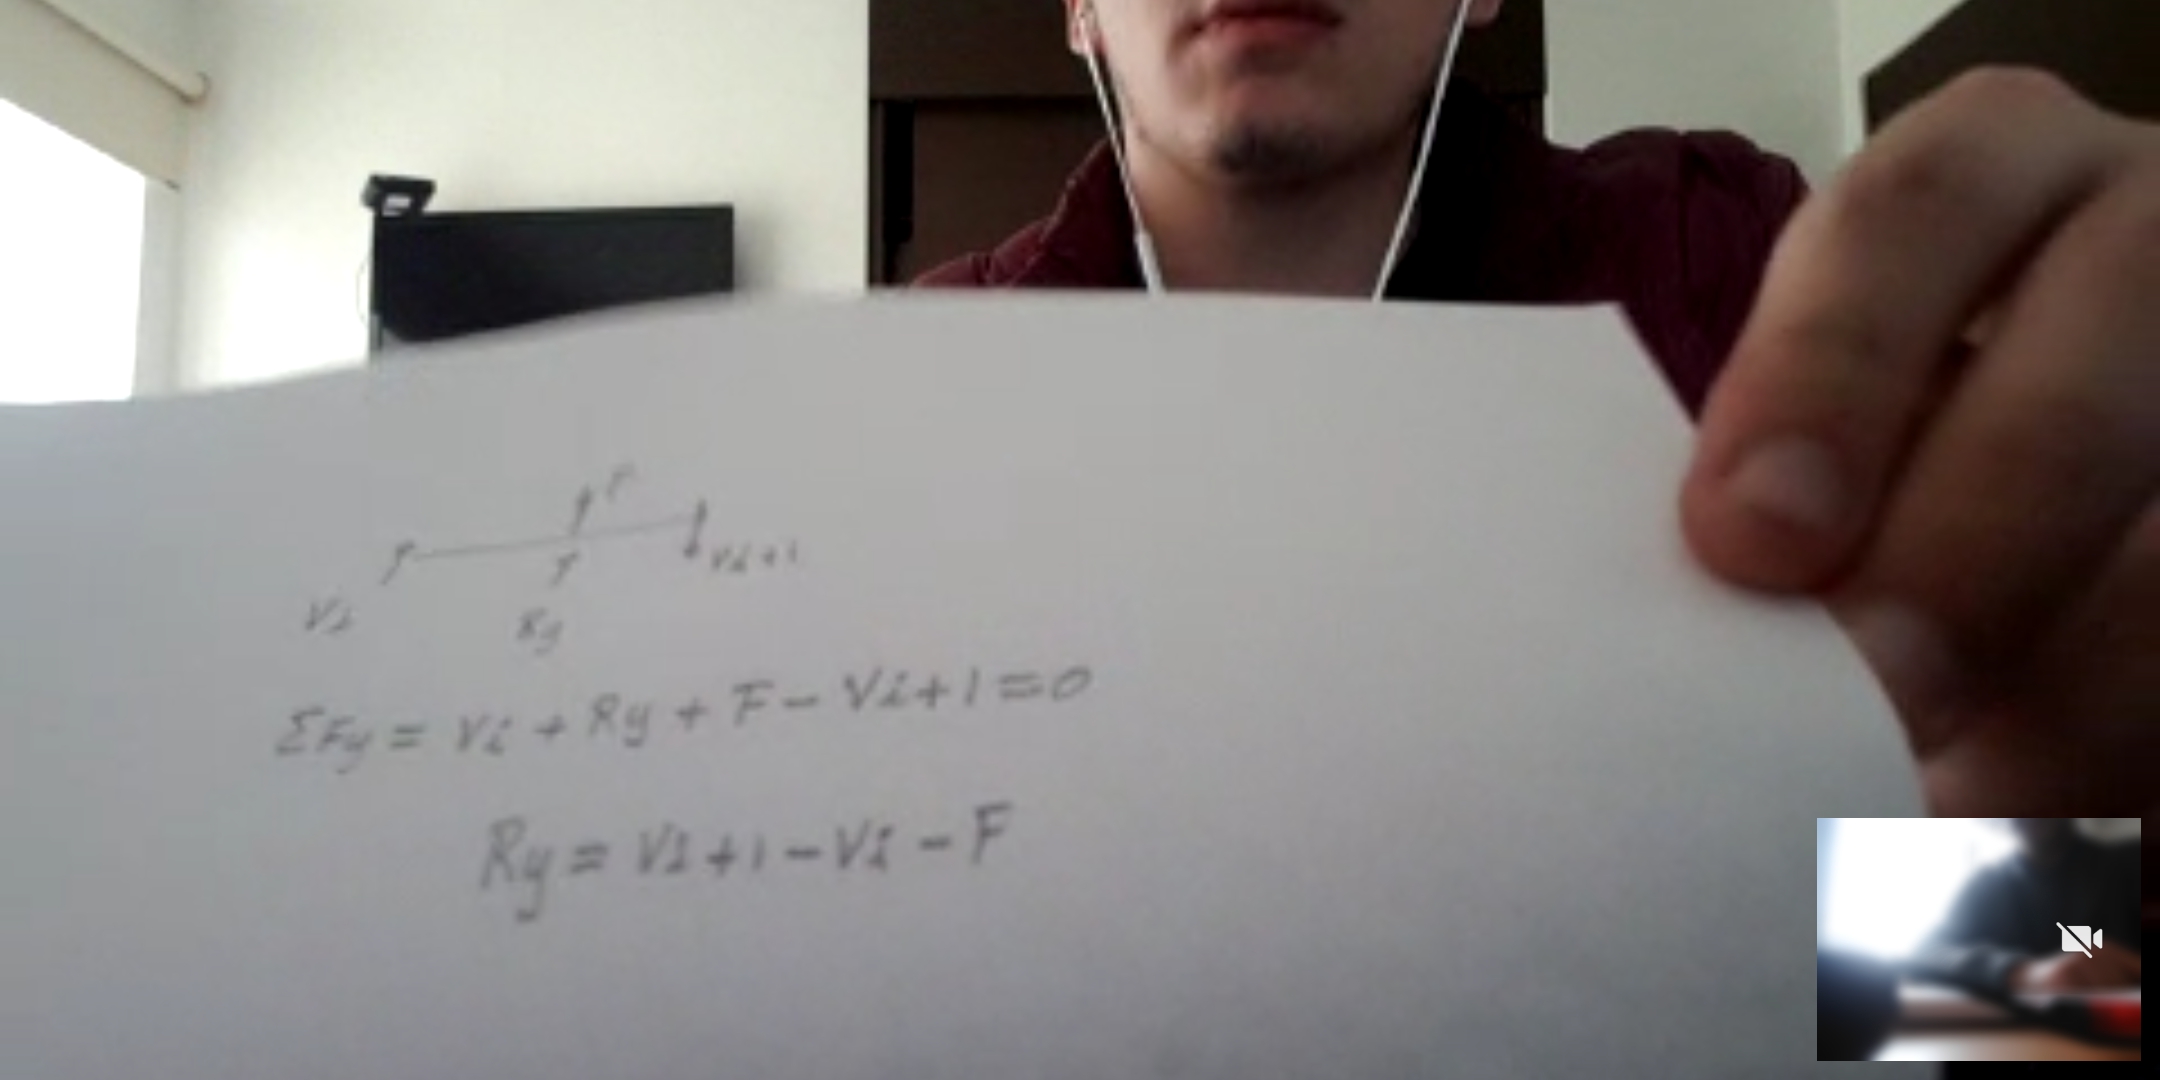 F
Vi+1
Vi
Ry
ΣFy = Vi + Ry + F - Vi+1 = 0
Ry = Vi+1 - Vi - F